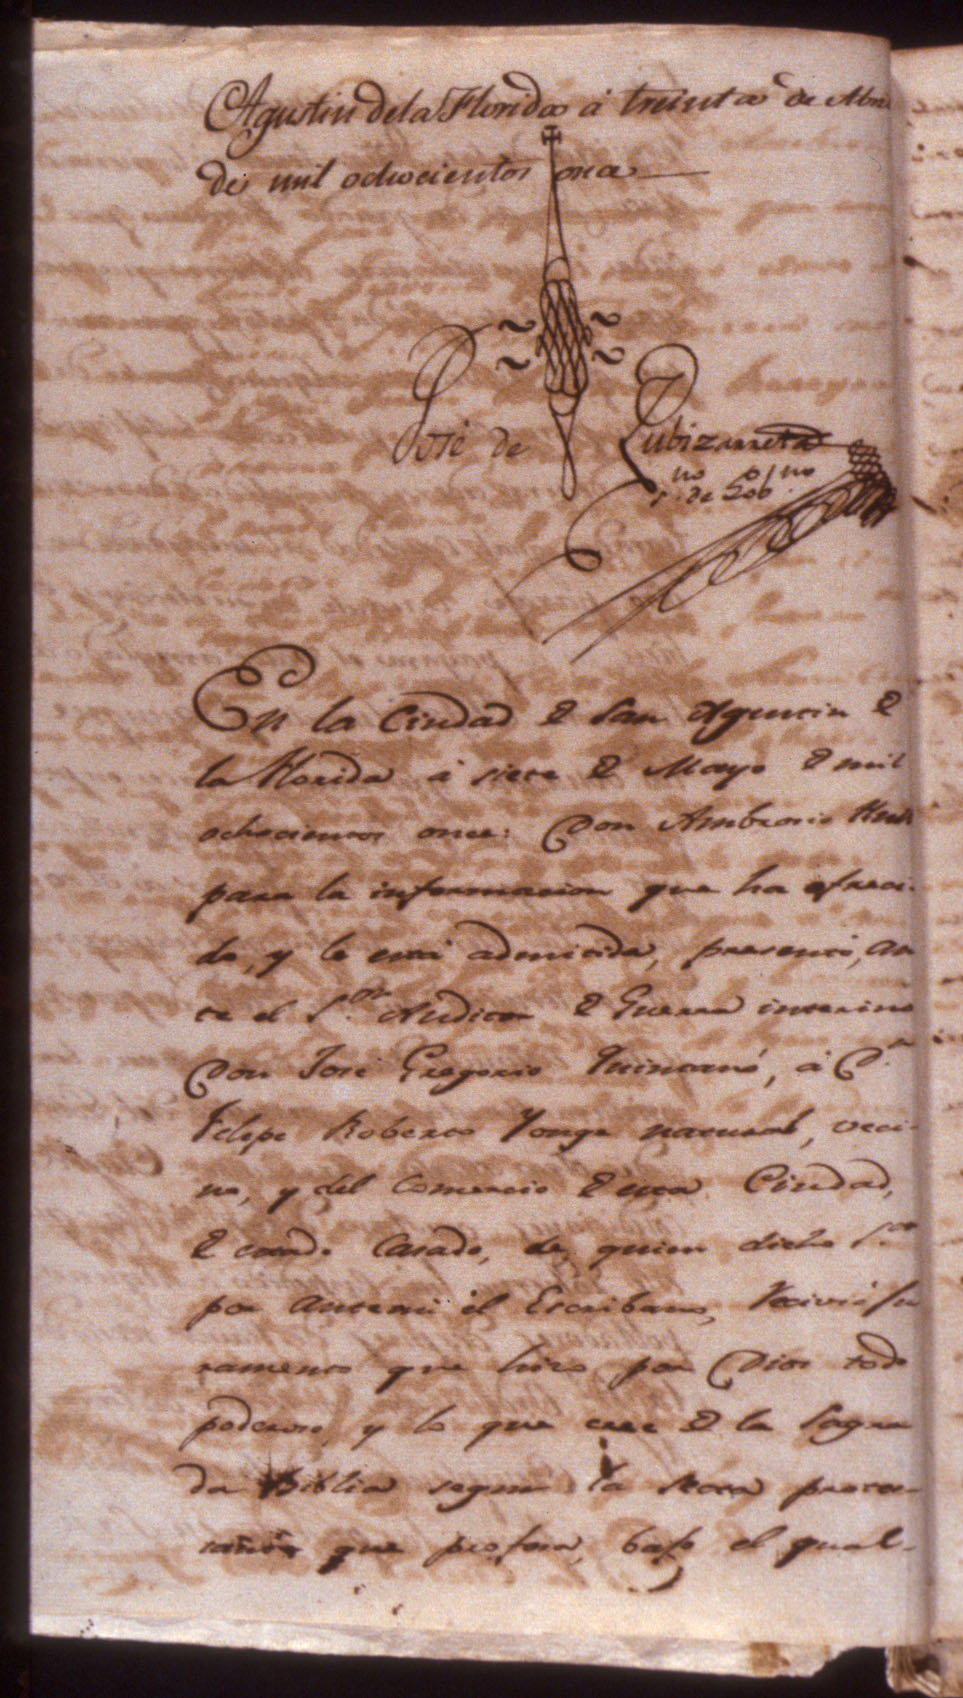 Agustin de la Florida á treinta de Abril
de mil ochocientos once
José de Zubizarreta
no de Gobno
En la Ciudad de San Agustin de
la Florida á siete de Mayo de mil
ochocientos once: Don Ambrosio Hull
para la informacion que ha ofreci-
do, y le está admitida, presentó, an
te el Sor Auditor de Guerra interino
Don José Gregorio Quintanó, á Dn
Felipe Roberto Yonge natural, veci-
no, y del Comercio de esta Ciudad,
de estado Casado, de quien dicho Sor
por antemi el Escribano, recivió ju
ramento que hizo por Dios todo
poderoso, y lo que cree de la Sagra
da Biblia segun la secta protes-
que profesa, bajo el qual-